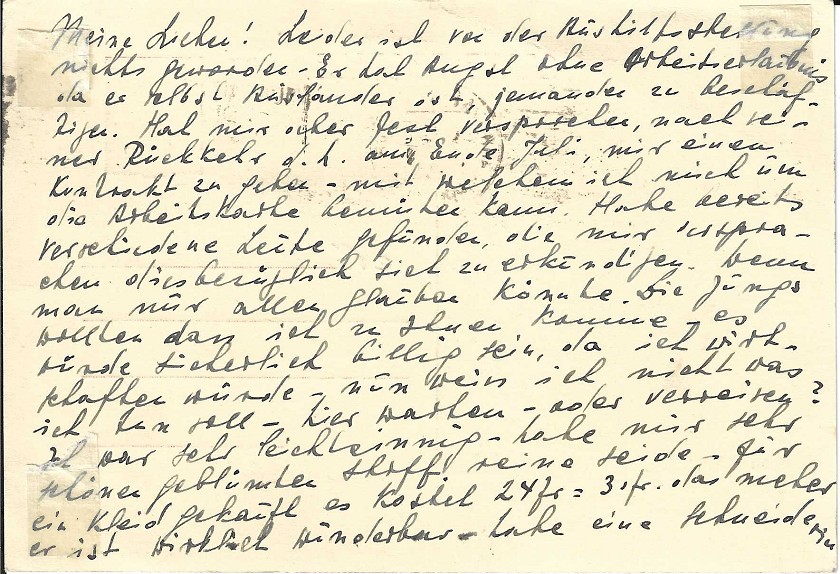 Meine Lieben! Leider ist von der Aushilfsstellung
nichts geworden - Er hat Angst ohne Arbeitserlaubnis
da er selbst Ausländer ist, jemanden zu beschäf-
tigen. Hat mir aber fest versprochen, nach sei-
ner Rückkehr d.h. Ende Juli, mir einen
Kontrakt zu geben - mit welchem ich mich um
die Arbeitskarte bemühen kann. Habe bereits
verschiedene Leute gefunden, die mir verspra-
chen diesbezüglich sich zu erkundigen. Wenn
man nur allen glauben könnte. Die Jungs
wollten dass ich zu Ihnen komme - es
würde sicherlich billig sein, da ich wirt-
schaften würde - nun weiss ich nicht was
ich tun soll - hier warten - oder verreisen?
Ich war sehr leichtsinnig - habe mir sehr
schönen geblümten Stoff reine Seide - für
ein Kleid gekauft es kostet 24 fr = 3. fr. das meter
er ist wirklich wunderbar - habe eine Schneiderin